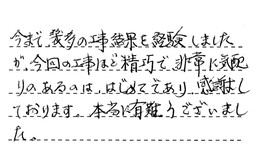 今まで幾多の工事結果を経験しました
が、今回の工事ほど精巧で非常に気配
りのあるのは、はじめてであり感謝し
ております。本当に有難うございまし
た。